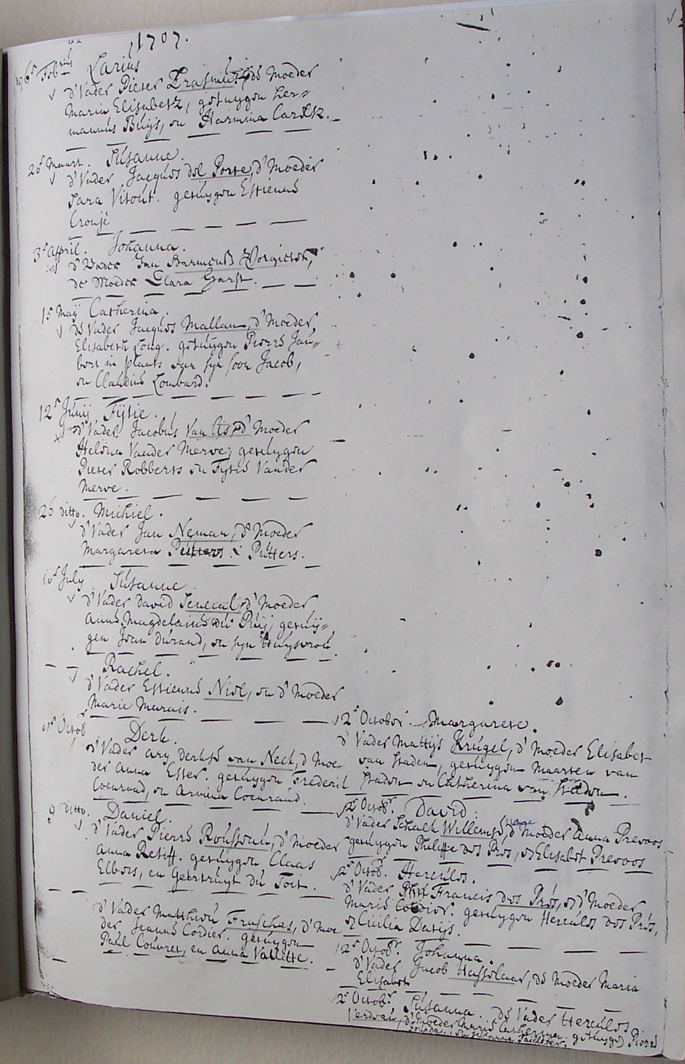 1707.
6e Febru
Larius
d'Vader Pieter Erasmus, de Moeder
Maria Elisabetz, getuygen Her=
mannus Buijs, en Harmina Carstz.
20e Maart. Susanne.
d'Vader Jacques del Porte, d'Moeder
Sara Vitout. getuygen Estienne
Cronje
3e April. Johanna.
d'Vader Jan Harmensz
de Moeder Clara
15 Maij Catherina.
de Vader Jacques Mallan, d'Moeder,
Elisabeth Long. getuygen Pierre Jou=
bert in plaats van syn soon Jacob,
en Claudine Lombard.
12e Junij Fijtie.
d'Vader Jacobus Van As, d'Moeder
Helena Vander Merve; getuygen
Pieter Robberts en Fytie Vander
Merve.
26 ditto. Michiel.
d'Vader Jan Neman, d'Moeder
Margareta Putters.
10e July Susanne.
d'Vader David Senecal, d'Moeder
Anna Magdelaine du Puij; getuij=
gen Jean Durand, en syn Huysvrou.
Rachel.
d'Vader Estienne Niel, en d'Moeder
Marie Marais.
Octob Derk.
d'Vader Ary Derksz van Neck, d'Moe
der Anna Esser. getuygen Frederik
Coenraad, en Armina Coenraad.
9 ditto. Daniel.
d'Vader Pierre Rousseau, d'Moeder
Anna Retiff. getuygen Claas
Elbers, en Geertruyt du Toit.
d'Vader Matthieu Fraschas, d'Moe
der Jeanne Cordier. getuygen
Paul Couvret, en Anna Valette.
2e October. Margarete.
d'Vader Mattijs Krugel, d'Moeder Elisabet
van Staden, getuygen Maarten van
Staden en Catherina van Staden.
2e Octob. David.
d'Vader Schack Willemse, d'Moeder Anna Prevoos
getuygen Philippe des Prés, en Elisabet Prevoos
2e Octob. Hercules.
d'Vader Francis des Prés, en d'Moeder
Marie Cordier. getuygen Hercules des Prés,
en Cicilia Datijs.
2e Octob. Johanna.
d'Vader Jacob Hasselaar, de Moeder Maria
Elisabet
2e Octob. Susanna. de Vader Hercules
Verdeau, d'Moeder Maria Catherina getuygen Pierre